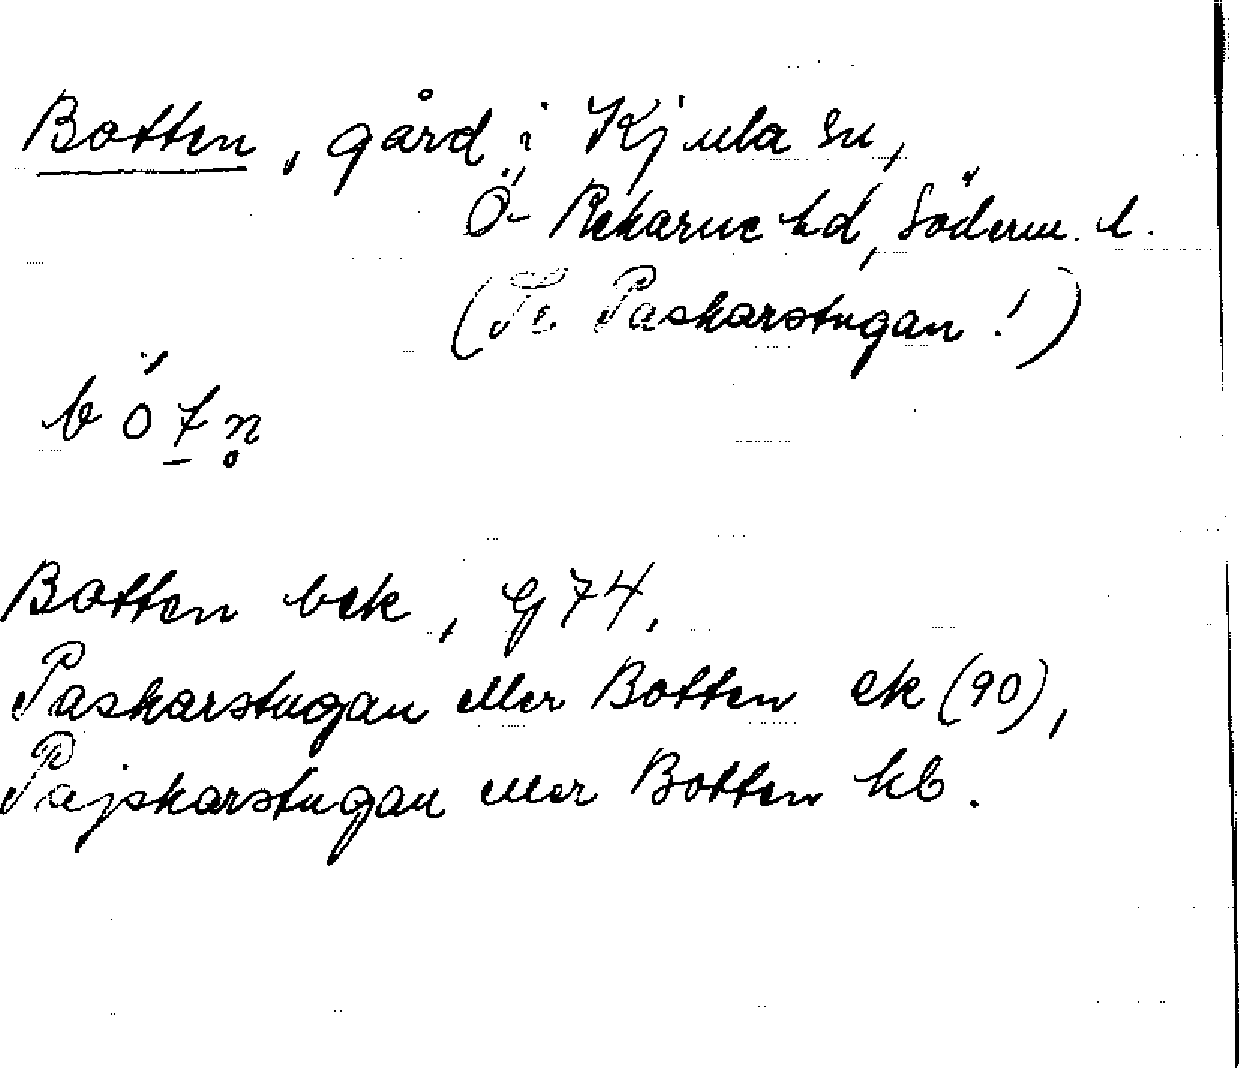 Botten, gård i Kjula sn,
Ö- Rekarne hd, Söderm. l.
(Se Paskarstugan!)
bótn̥
Botten bek, g 74,
Paskarstugan eller Botten ek (90),
Pajskarstugan eller Botten hb.